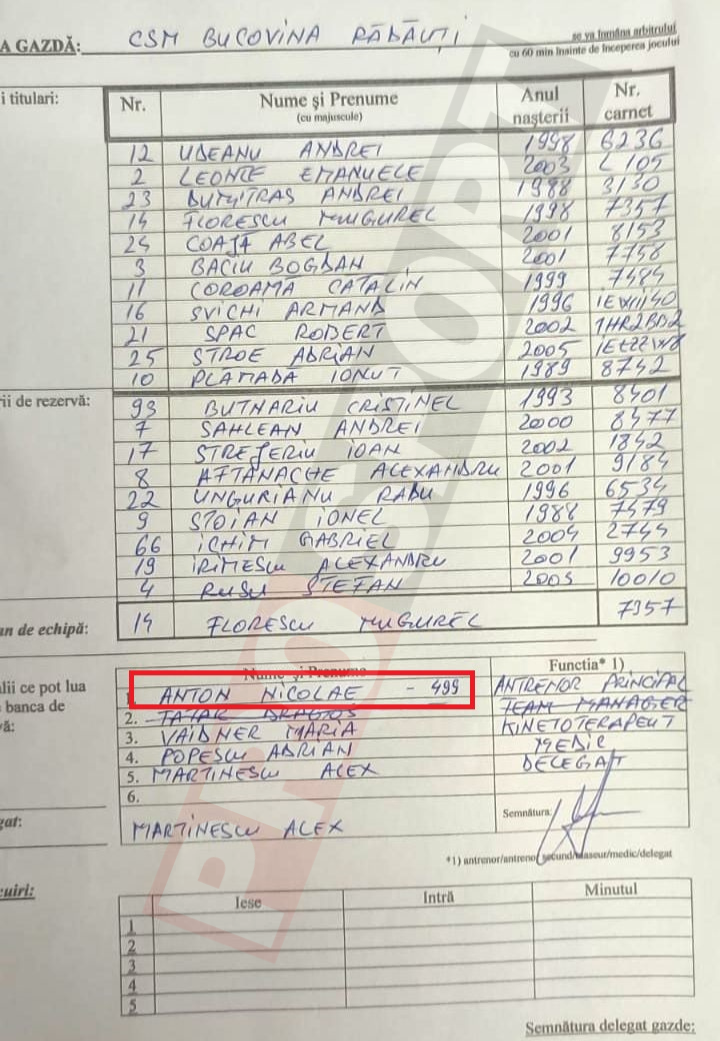 A GAZDĂ: CSM BUCOVINA RĂDĂUȚI
se va înmâna arbitrului
cu 60 min înainte de începerea jocului
i titulari:
Nr. Nume şi Prenume (cu majuscule) Anul naşterii Nr. carnet
12 UDEANU ANDREI 1998 6236
2 LEONTE EMANUELE 2003 L 105
23 DUMITRAȘ ANDREI 1988 3130
14 FLORESCU MUGUREL 1998 7357
24 COAJĂ ABEL 2001 8153
3 BACIU BOGDAN 2001 7758
11 COROAMĂ CATALIN 1999 7484
16 SVICHI ARMAND 1996
21 SPAC ROBERT 2002 1HR2BD2
25 STROE ADRIAN 2005
10 PLAMADĂ IONUT 1989 8742
rii de rezervă:
93 BUTNARIU CRISTINEL 1993 8401
7 SAHLEAN ANDREI 2000 8477
17 STREJERIU IOAN 2002 1842
8 AFTANACHE ALEXANDRU 2001 9184
22 UNGURIANU RADU 1996 6534
9 STOIAN IONEL 1988 7479
66 ICHIM GABRIEL 2004 2744
19 IRIMESCU ALEXANDRU 2001 9953
4 RUSU ȘTEFAN 2003 10010
an de echipă: 14 FLORESCU MUGUREL 7357
Nume şi Prenume Functia* 1)
alii ce pot lua
banca de
vă:
1. ANTON NICOLAE - 499 ANTRENOR PRINCIPAL
2. TATAR DRAGOS TEAM MANAGER
3. VAIDNER MARIA KINETOTERAPEUT
4. POPESCU ADRIAN MEDIC
5. MARTINESCU ALEX DELEGAT
6.
gat: MARTINESCU ALEX
Semnătura:
*1) antrenor/antrenor secund/maseur/medic/delegat
cuiri:
Iese Intră Minutul
1
2
3
4
5
Semnătura delegat gazde:
PROSPORT